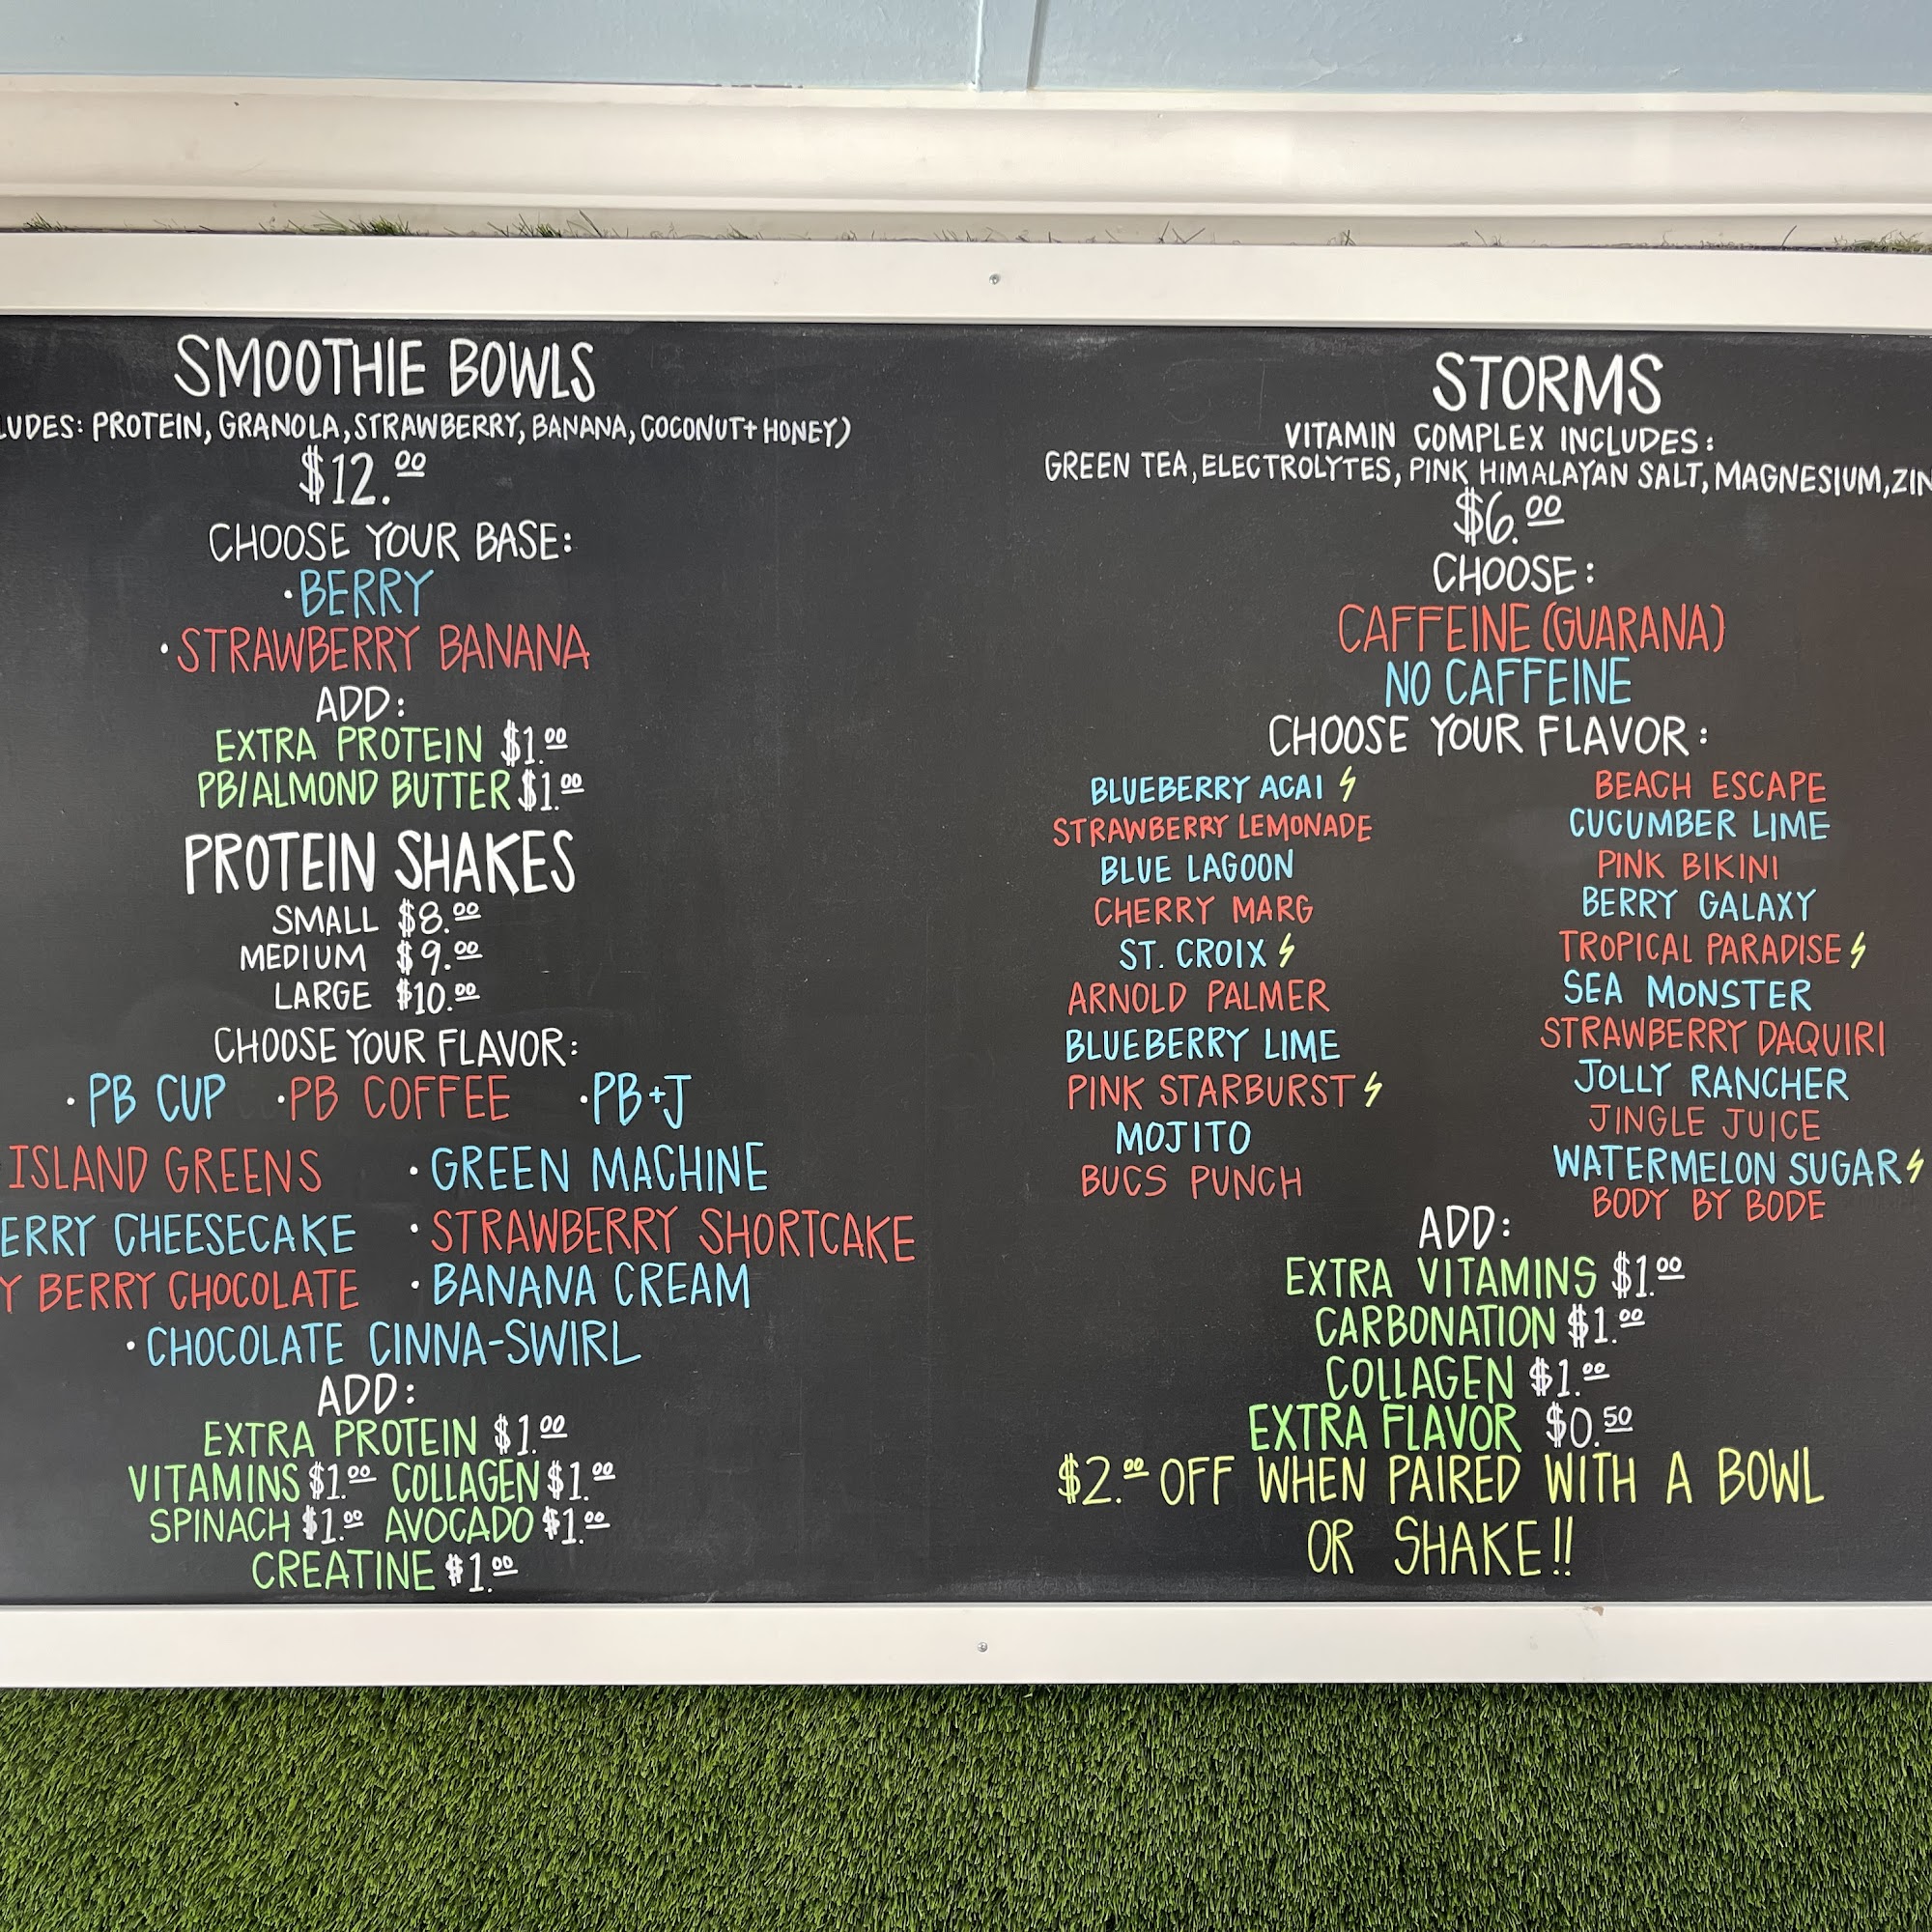 SMOOTHIE BOWLS
PROTEIN, GRANOLA, STRAWBERRY, BANANA, COCONUT + HONEY)
$12.00
CHOOSE YOUR BASE:
·BERRY
·STRAWBERRY BANANA
ADD:
EXTRA PROTEIN $1.00
PB/ALMOND BUTTER $1.00
PROTEIN SHAKES
SMALL $8.00
MEDIUM $9.00
LARGE $10.00
CHOOSE YOUR FLAVOR:
·PB CUP ·PB COFFEE ·PB+J
ISLAND GREENS ·GREEN MACHINE
CHEESECAKE ·STRAWBERRY SHORTCAKE
BERRY CHOCOLATE ·BANANA CREAM
·CHOCOLATE CINNA-SWIRL
ADD:
EXTRA PROTEIN $1.00
VITAMINS $1.00 COLLAGEN $1.00
SPINACH $1.00 AVOCADO $1.00
CREATINE $1.00
STORMS
VITAMIN COMPLEX INCLUDES:
GREEN TEA, ELECTROLYTES, PINK HIMALAYAN SALT, MAGNESIUM,
$6.00
CHOOSE:
CAFFEINE (GUARANA)
NO CAFFEINE
CHOOSE YOUR FLAVOR:
BLUEBERRY ACAI
STRAWBERRY LEMONADE
BLUE LAGOON
CHERRY MARG
ST. CROIX
ARNOLD PALMER
BLUEBERRY LIME
PINK STARBURST
MOJITO
BUCS PUNCH
BEACH ESCAPE
CUCUMBER LIME
PINK BIKINI
BERRY GALAXY
TROPICAL PARADISE
SEA MONSTER
STRAWBERRY DAQUIRI
JOLLY RANCHER
JINGLE JUICE
WATERMELON SUGAR
BODY BY BODE
ADD:
EXTRA VITAMINS $1.00
CARBONATION $1.00
COLLAGEN $1.00
EXTRA FLAVOR $0.50
$2.00 OFF WHEN PAIRED WITH A BOWL
OR SHAKE!!